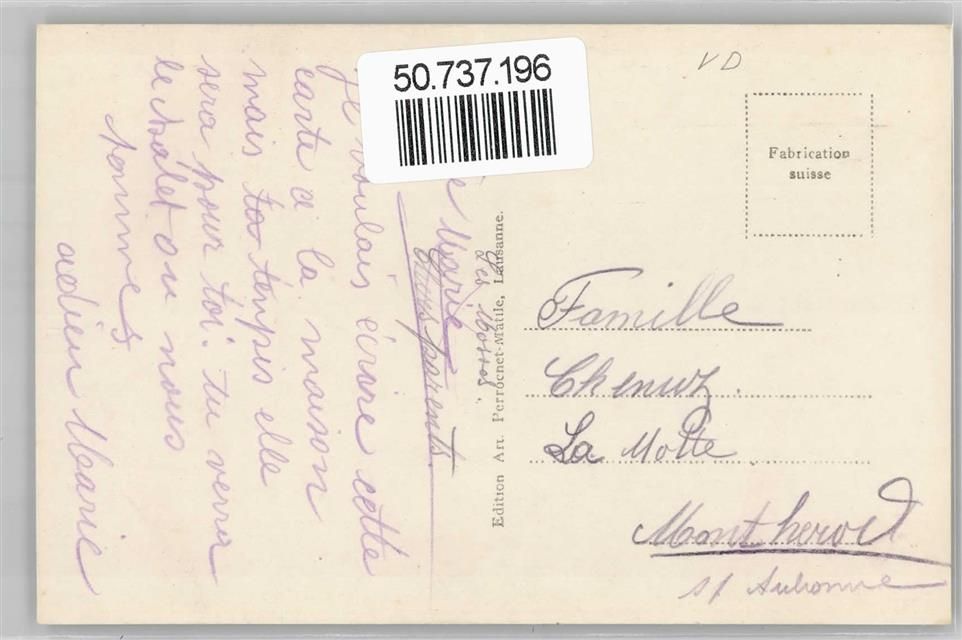 50.737.196
VD
Fabrication
suisse
Edition Art. Perrochet-Matile, Lausanne.
Les Mosses
Marie
Chers parents
Je voulais écrire cette
carte a la maison
mais tan tempis elle
sera pour toi. tu verra
le chalet ou nous
sommes
adieu Marie
Famille
Chenuz.
La Motte
Montherod
s/ Aubonne